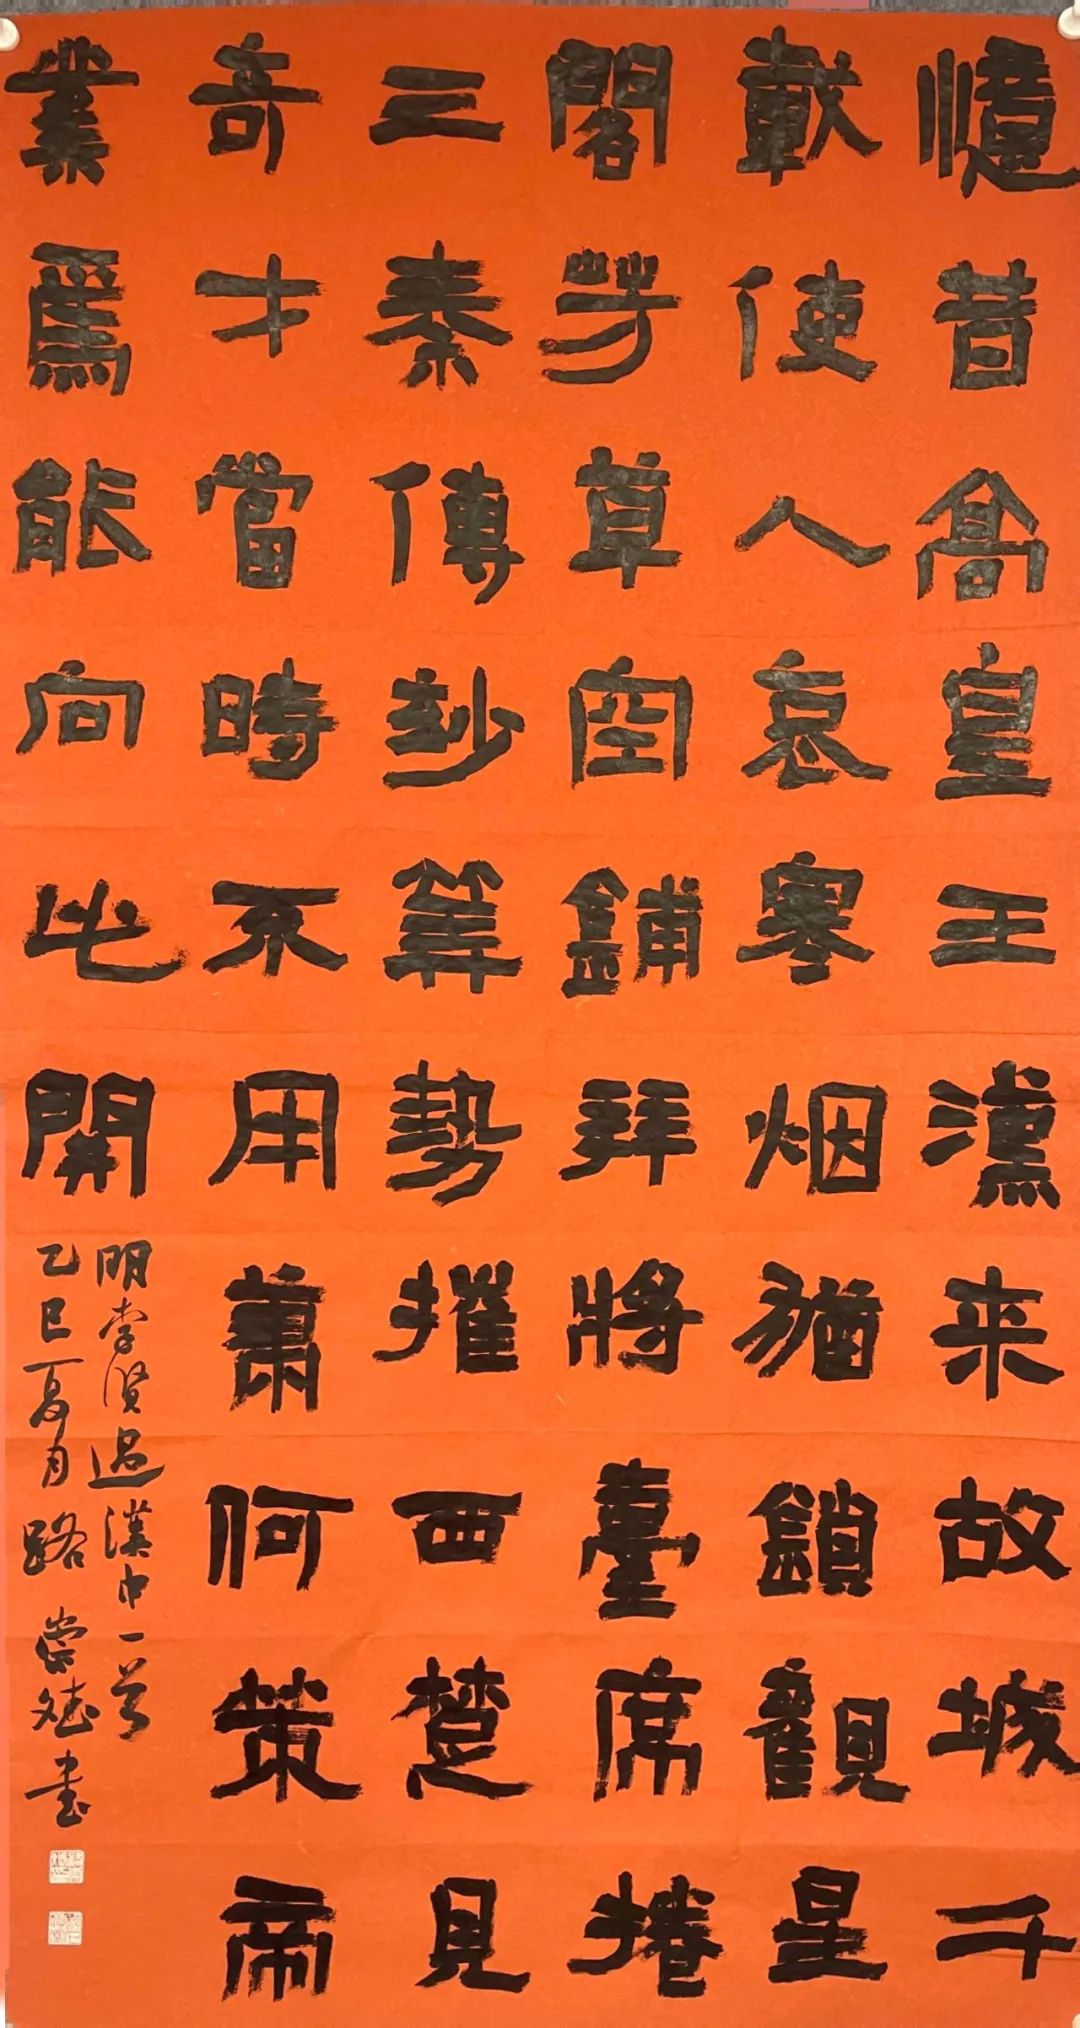 憶昔高皇王漢来故城千
載使人哀寒烟猶鎖觀星
閣芳草空鋪拜將臺席捲
三秦傳妙筭勢摧西楚見
奇才當時不用蕭何策帝
業爲能向此開
明李贤過漢中一首
乙巳夏月路崇斌書